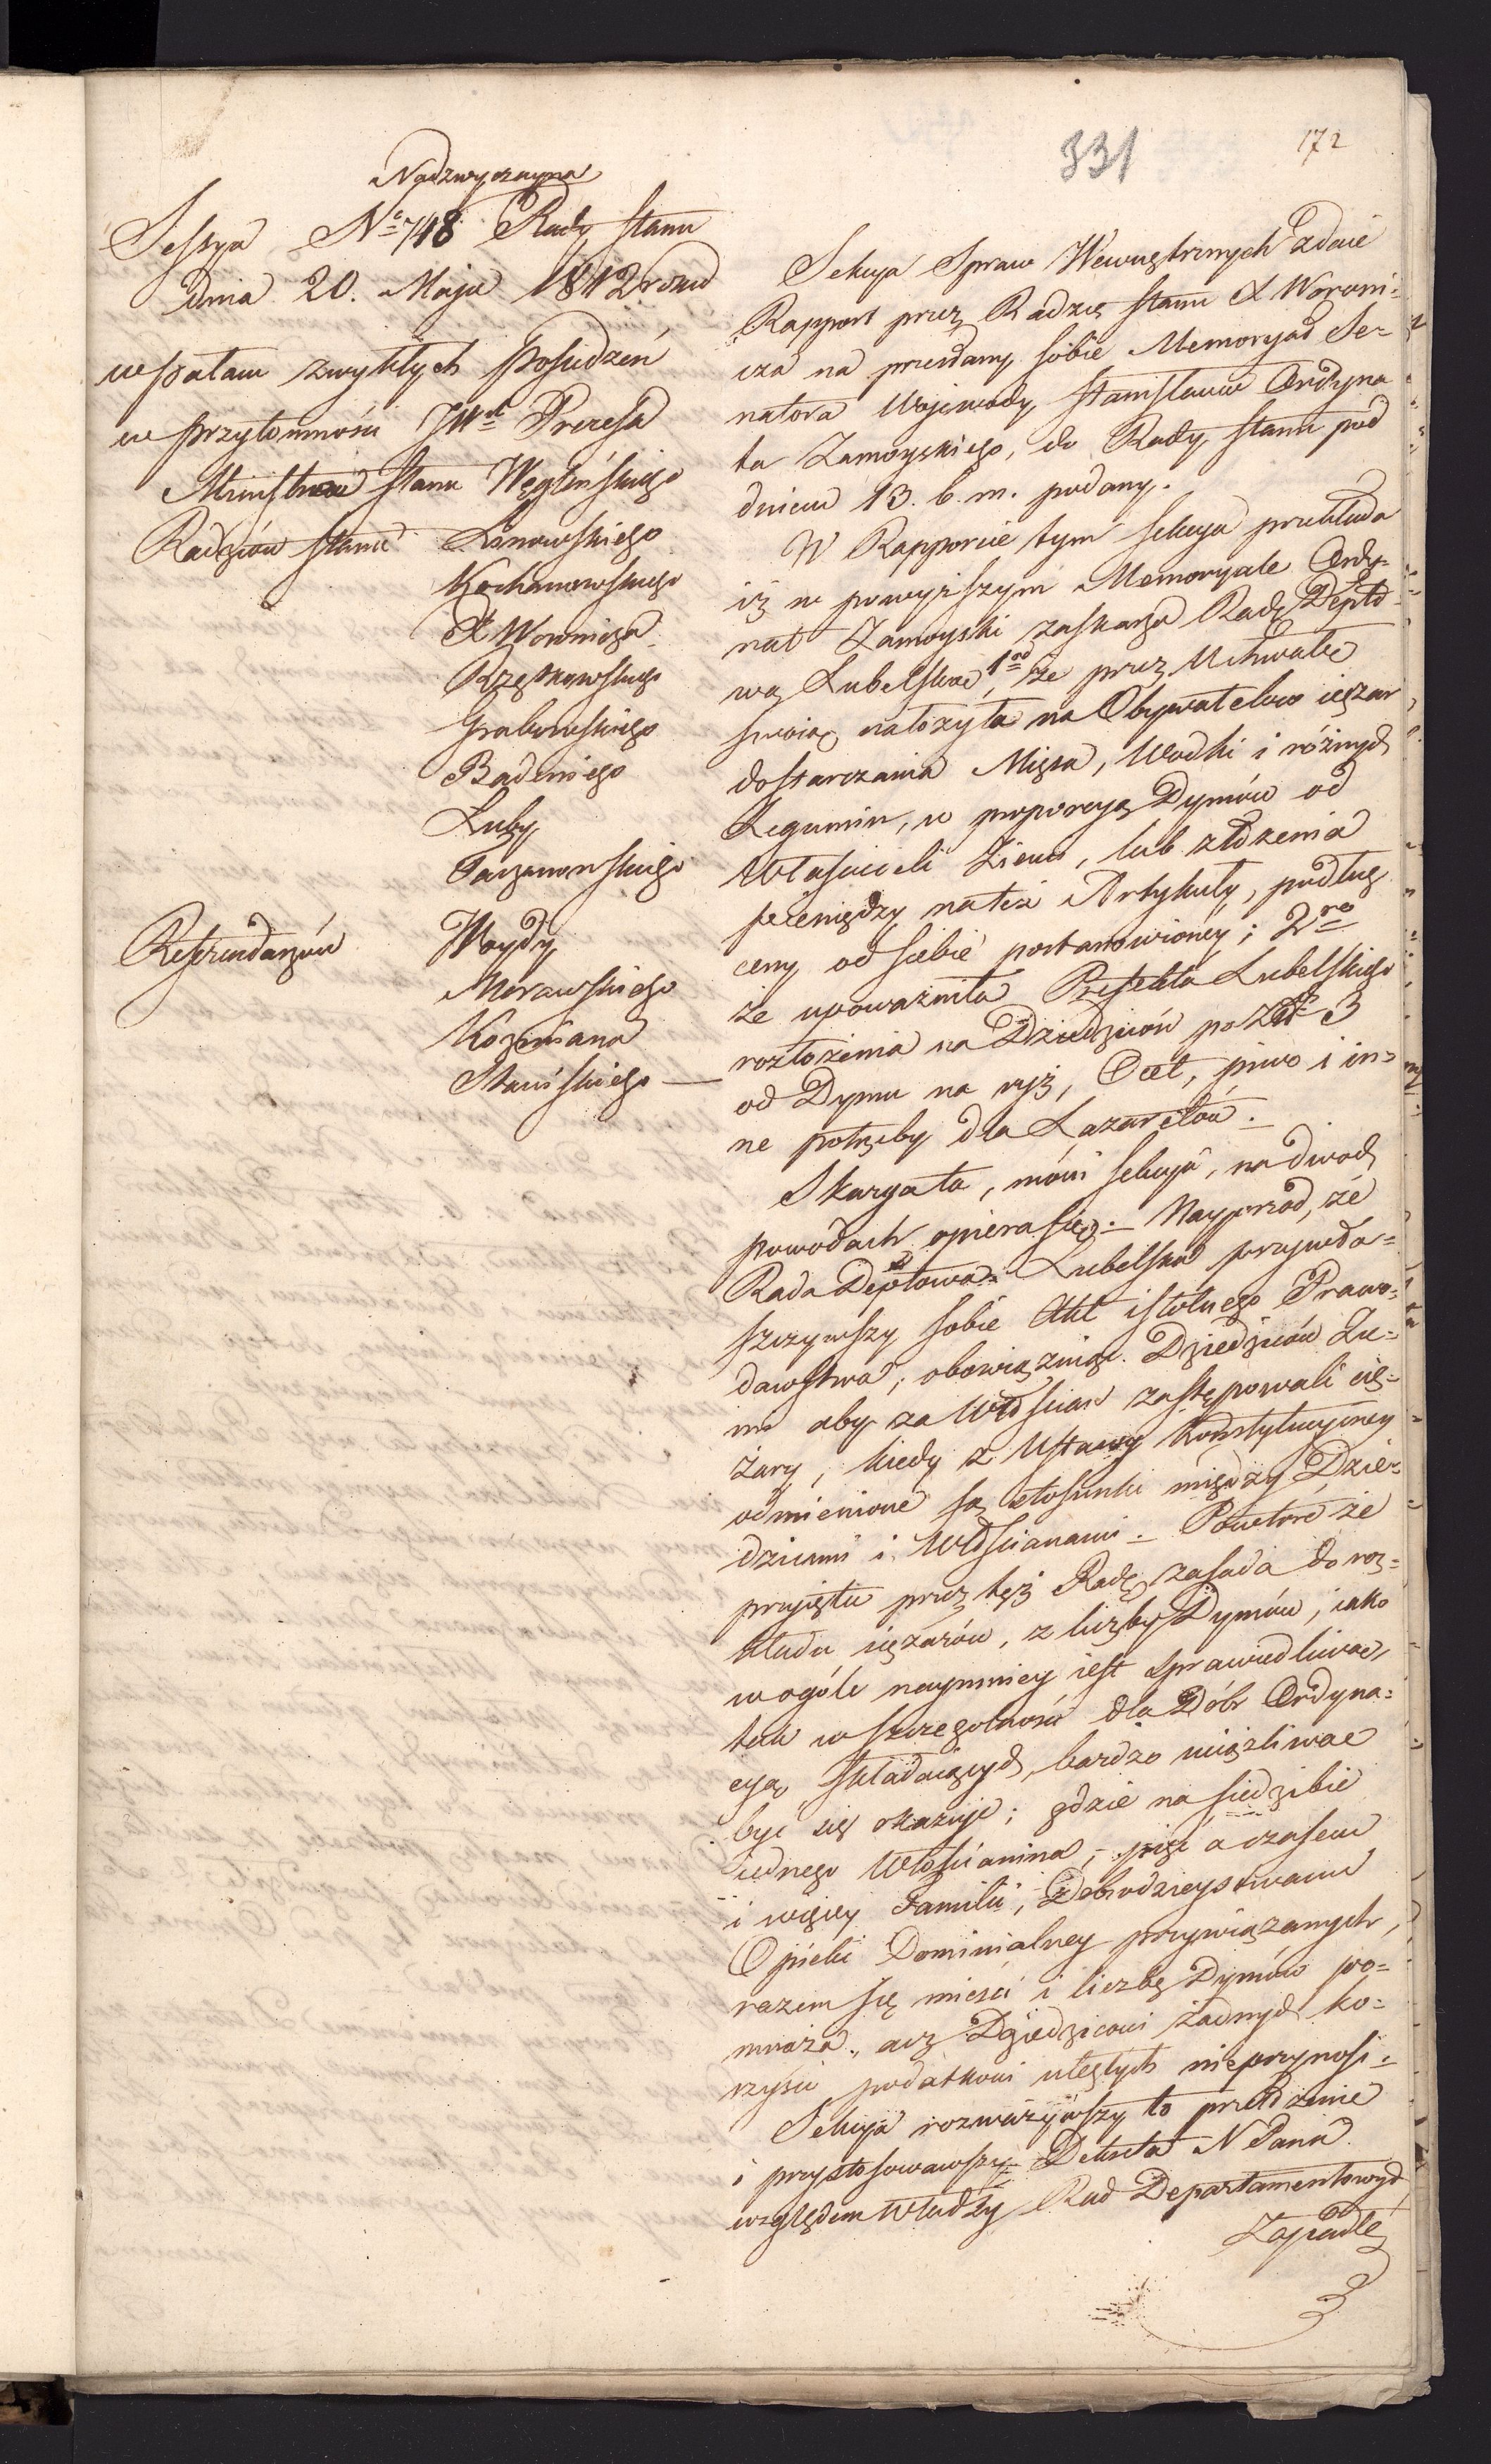 331
172
Nadzwyczayna
Sessya Nº 718 Rady Stanu
dnia 20. Maja 1812 roku
w pałacu zwykłych posiedzeń
w przytomności JW Prezesa
Ministrów Stanu Węgleńskiego
Radzców Stanu Linowskiego
Kochanowskiego
X Woronicza
Rzętkowskiego
Grabowskiego
Badeniego
Łuby
Tarzanowskiego
Referendarzów Woydy
Morawskiego
Koźmiana
Stawiskiego —
Sekcya Spraw Wewnętrznych zdaie
Rapport przez Radzcę Stanu X Woroni-
cza na przesłany sobie Memoryał Se-
natora Wojewody Stanisława Ordyna
ta Zamoyskiego, do Rady Stanu pod
dniem 13. b. m. podany.
W Rapporcie tym Sekcya przekłada
iż w powyższym Memoryale Ordy-
nat Zamoyski zaskarża Radę Depto-
wą Lubelską 1mo, że przez Uchwałę
swoią nałożyła na Obywatelów ciężar
dostarczania Mięsa, Wodki i różnych
Legumin, w proporcyą Dymów od
Właścicieli Ziemi, lub złożenia
pieniędzy na też Artykuły, podług
ceny od siebie postanowioney; 2do
że upoważniła Prefekta Lubelskiego
rozłożenia na Dziedziców po Złł 3
od Dymu na ryż, Ocet, piwo i in-
ne potrzeby dla Lazaretów.
Skarga ta, mówi Sekcya, na dwóch
powodach opiera się. Nayprzod, że
Rada Deptowa Lubelska przywła-
szczywszy sobie Akt istotnego Prawo-
dawstwa, obowiązuie Dziedziców Zie-
mi aby za Włościan zastępowali cię-
żary, kiedy z Ustawy Konstytucyiney
odmienione są stosunki między Dzie-
dzicami i Włościanami. Powtore że
przyięta przez też Radę zasada do roz-
kładu ciężarów, z liczby Dymów, iako
wogóle naymniey iest sprawiedliwa,
tak w szczegolności dla Dóbr Ordyna-
cyą składaiących, bardzo uciążliwa
być się okazuje; gdzie na siedzibie
iednego Włościanina, pięć a czasem
i więcey Familii, Dobrodzieystwami
Opieki Dominialney przywiązanych,
razem się mieści i liczbę Dymów po-
mnaża, acz Dziedzicowi żadnych ko-
rzyści podatkowi uległych nieprzynosi.
Sekcya rozważywszy to przełożenie
i przystosowawszy Dekreta N Pana
względem władzy Rad Departamentowych
Zapadłe